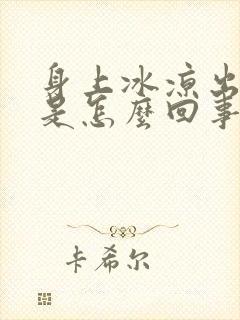 身上冰凉出
是怎麼回事
卡希尔